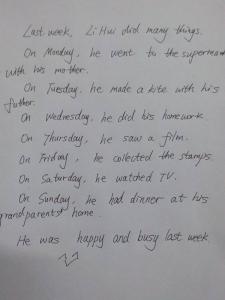 Last week, Li Hui did many things.
On Monday, he went to the supermark
with his mother.
On Tuesday, he made a kite with his
father.
On Wednesday, he did his homework
On Thursday, he saw a film.
On Friday, he collected the stamps.
On Saturday, he watched TV.
On Sunday, he had dinner at his
grandparents' home.
He was happy and busy last week